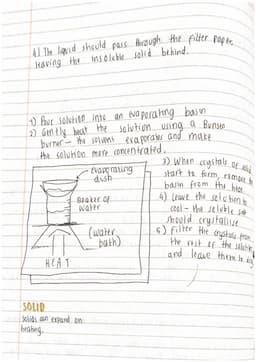 4) The liquid should pass through the filter paper
leaving the insoluble solid behind.
1) Pour solution into an evaporating basin
2) Gently heat the solution using a Bunsen
burner - the solvent evaporates and make
the solution more concentrated.
evaporating
dish
Beaker of
water
(water
bath)
HEAT
3) When crystals of solid
start to form, remove the
basin from the heat.
4) leave the solution to
cool - the soluble salt
should crystallise
5) Filter the crystals from
the rest of the solution
and leave them to dry
SOLID
Solids can expand on
heating.